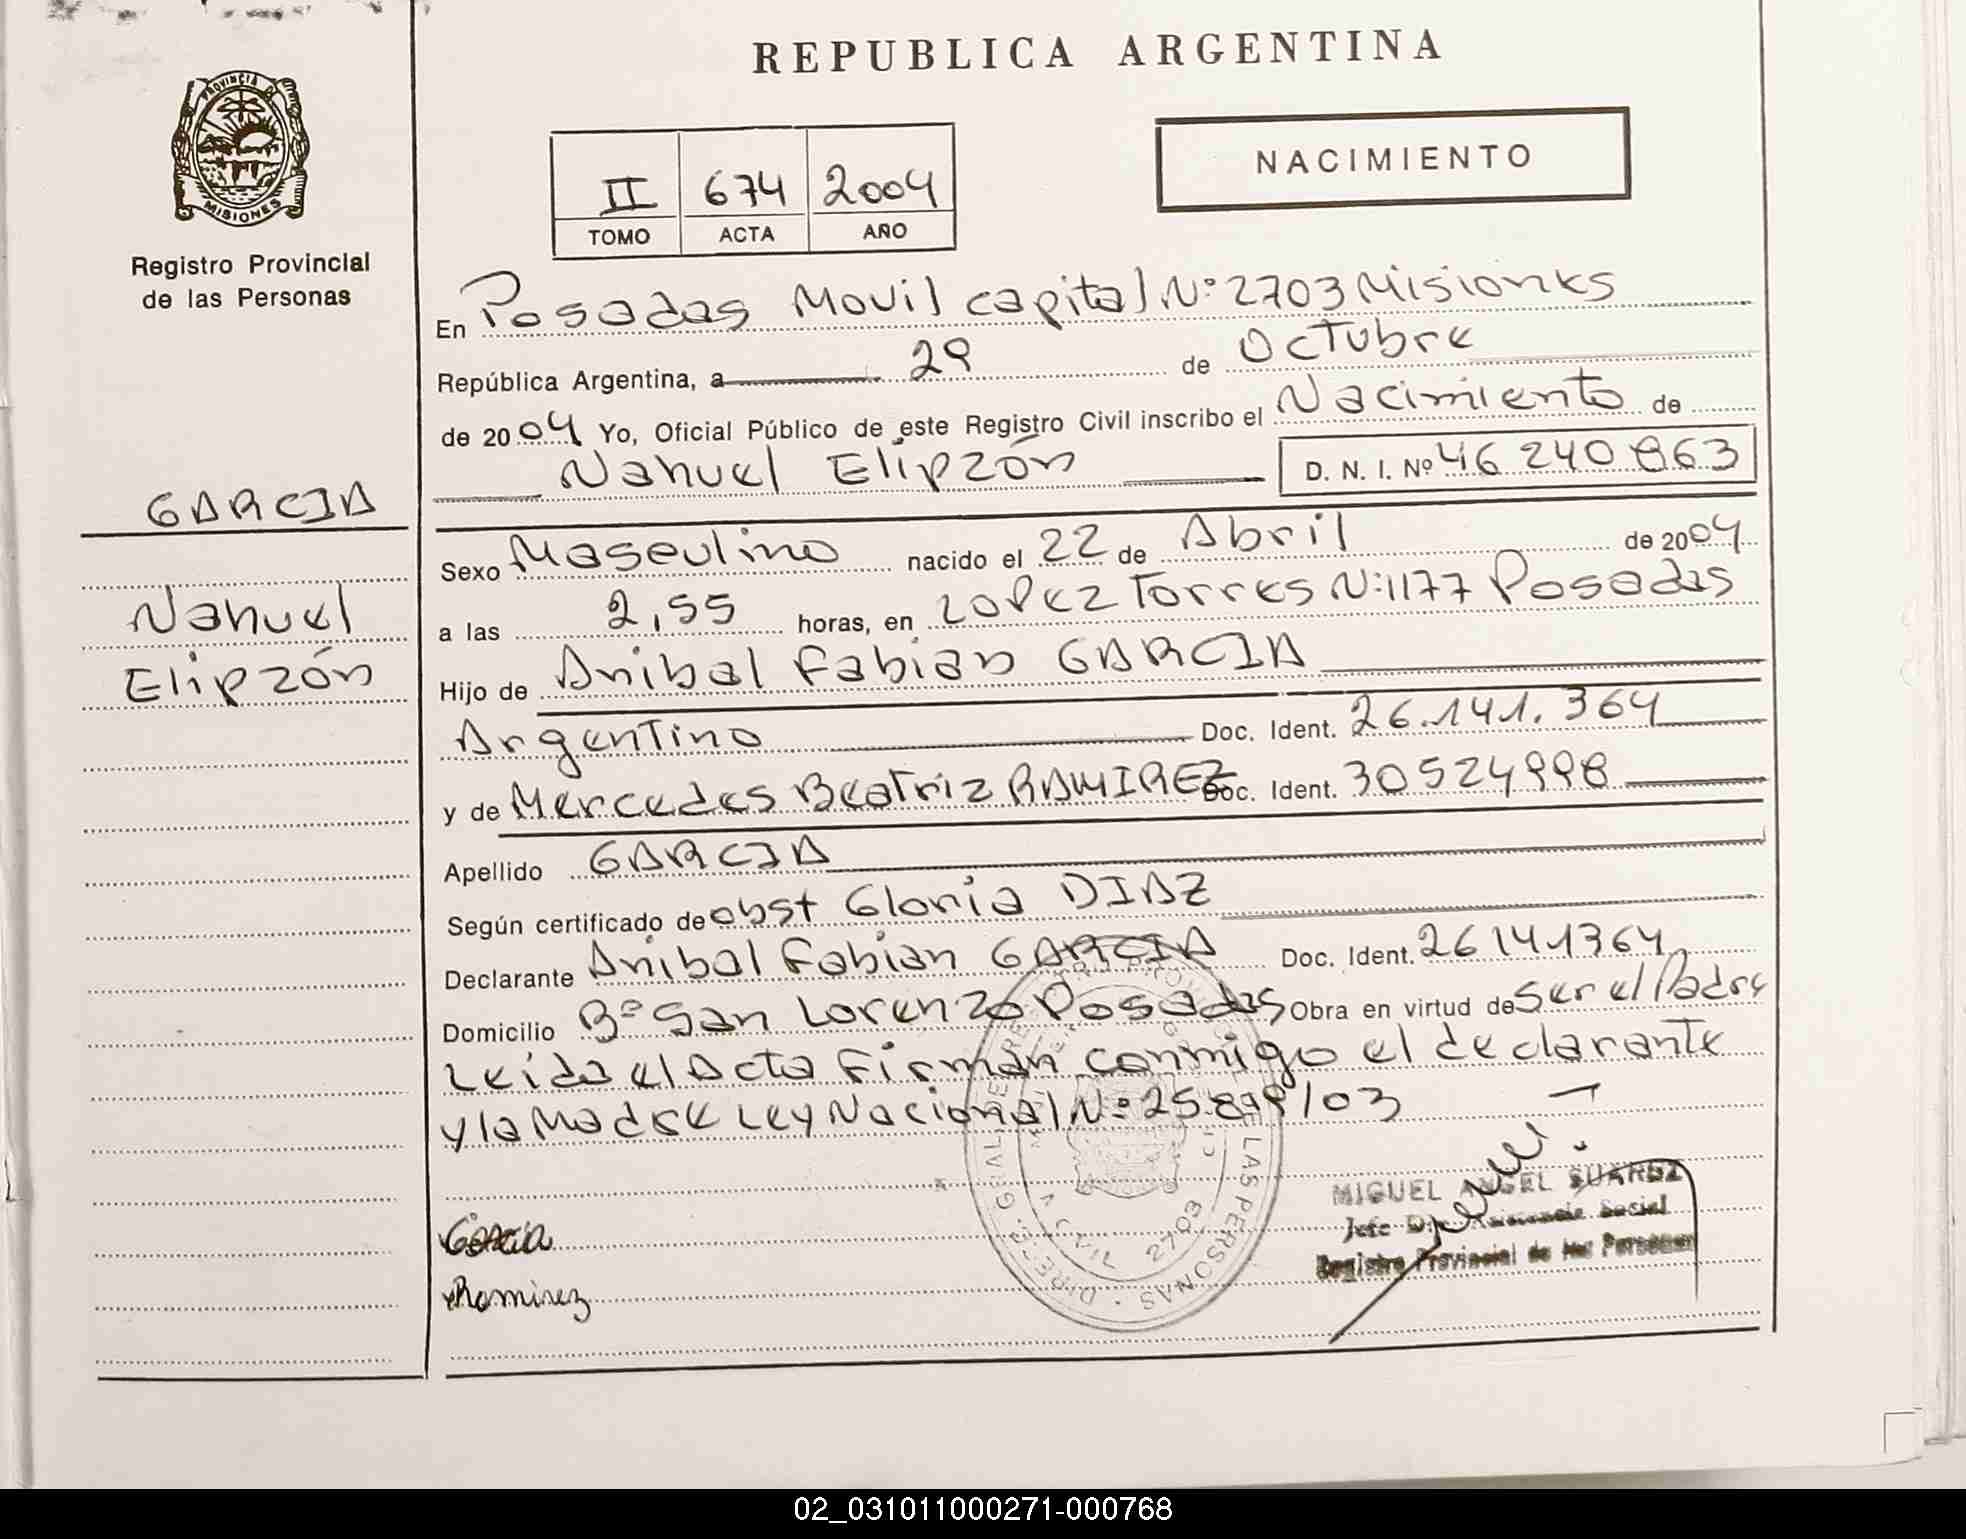 REPUBLICA ARGENTINA
PROVINCIA DE
MISIONES
Registro Provincial
de las Personas
NACIMIENTO
II 674 2004
TOMO ACTA AÑO
En Posadas Movil capital Nº 2703 Misiones
República Argentina, a 29 de Octubre
de 2004 Yo, Oficial Público de este Registro Civil inscribo el Nacimiento de
Nahuel Elipzón D. N. I. Nº 46 240 863
GARCIA
Nahuel
Elipzón
Sexo Masculino nacido el 22 de Abril de 2004
a las 2,55 horas, en LOPEZ Torres Nº 1177 Posadas
Hijo de Anibal Fabian GARCIA
Argentino Doc. Ident. 26.141.364
y de Mercedes Beatriz RAMIREZ Doc. Ident. 30524998
Apellido GARCIA
Según certificado de obst Gloria DIAZ
Declarante Anibal Fabian GARCIA Doc. Ident. 26141364
Domicilio Bº San Lorenzo Posadas Obra en virtud de ser el Padre
Leida el Acta Firman conmigo el declarante
y la Madre Ley Nacional Nº 25.819/03
MIGUEL ANGEL SUAREZ
Jefe Asistencia Social
Registro Provincial de las Personas
Garcia
Ramirez
LAS PERSONAS
CIVIL 2703
02_031011000271-000768